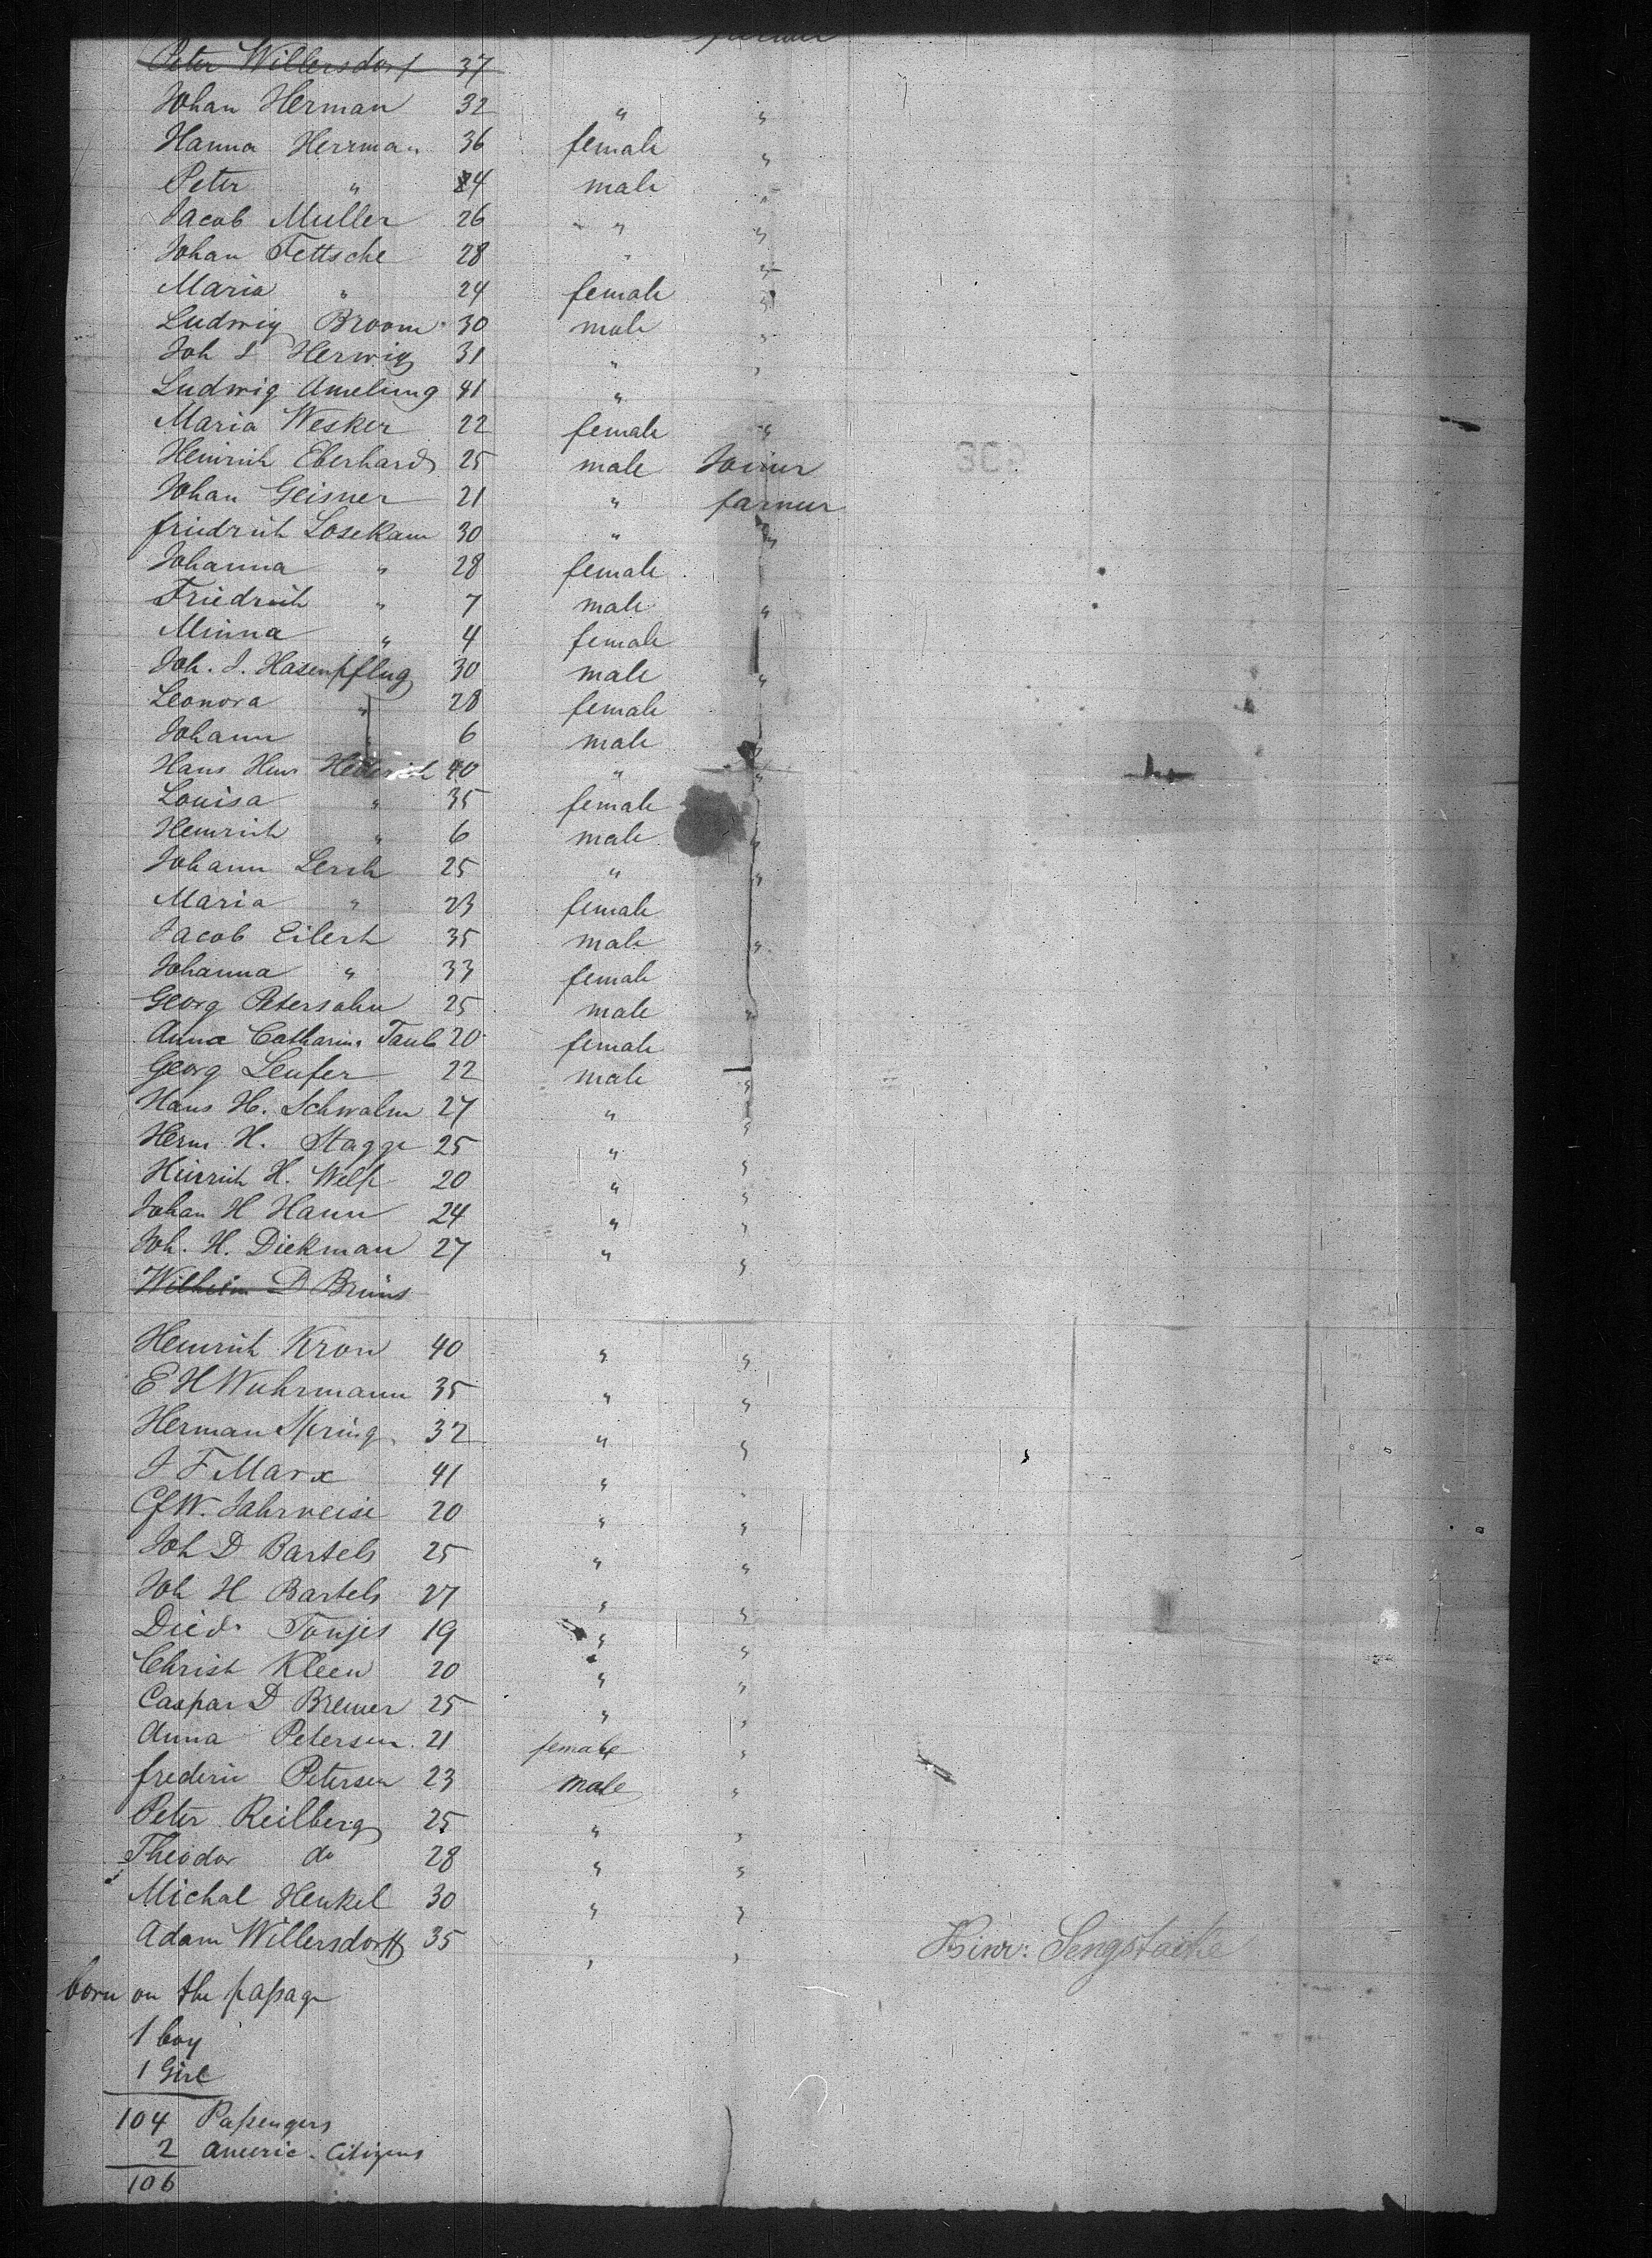 Peter Willersdorf 37
Johan Herman 32 " "
Hanna Herrman 36 female "
Peter " 4 male "
Jacob Muller 26 " "
Johan Fettsche 28 " "
Maria " 24 female "
Ludwig Broom 30 male "
Joh L Herwig 31 " "
Ludwig Ameling 41 "
Maria Wesker 22 female "
Heinrich Eberhard 25 male Joiner
Johan Geisner 21 " farmer
friedrich Losekam 30 " "
Johanna " 28 female
Friedrich " 7 male "
Minna " 4 female
Joh. J. Hasenpflug 30 male "
Leonora " 28 female
Johann " 6 male "
Hans Hinr 40 " "
Louisa " 35 female
Heinrich " 6 male "
Johann Lerch 25 " "
Maria " 23 female
Jacob Eilert 35 male "
Johanna " 33 female
Georg Petersohn 25 male "
Anna Catharina Taub 20 female
Georg Leufer 22 male "
Hans H. Schwalm 27 " "
Herm H. Stagge 25 " "
Hinrich H. Welp 20 " "
Johan H Hann 24 " "
Joh. H. Diekman 27 " "
Wilhelm D Bruns
Heinrich Kron 40 " "
E H Wuhrmann 35 " "
Herman Spring 32 " "
J F Marx 41 " "
C f W. Jahrweise 20 " "
Joh D Bartels 25 " "
Joh H Bartels 27 " "
Died. Tonjes 19 " "
Christ Kleen 20 " "
Caspar D Bremer 25 " "
Anna Petersen 21 female "
frederic Petersen 23 male "
Peter Reilberg 25 " "
Theodor do 28 " "
Michal Henkel 30 " "
Adam Willersdorff 35 " "
Hinr: Sengstacke
born on the passage
1 boy
1 Girl
104 Passengers
2 Americ. Citizens
106